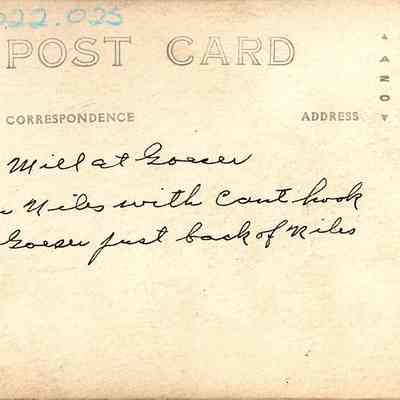 022.025
POST CARD
CORRESPONDENCE
ADDRESS
ANO
Mill at Goeser
Niles with Cant hook
Goeser just back of Niles